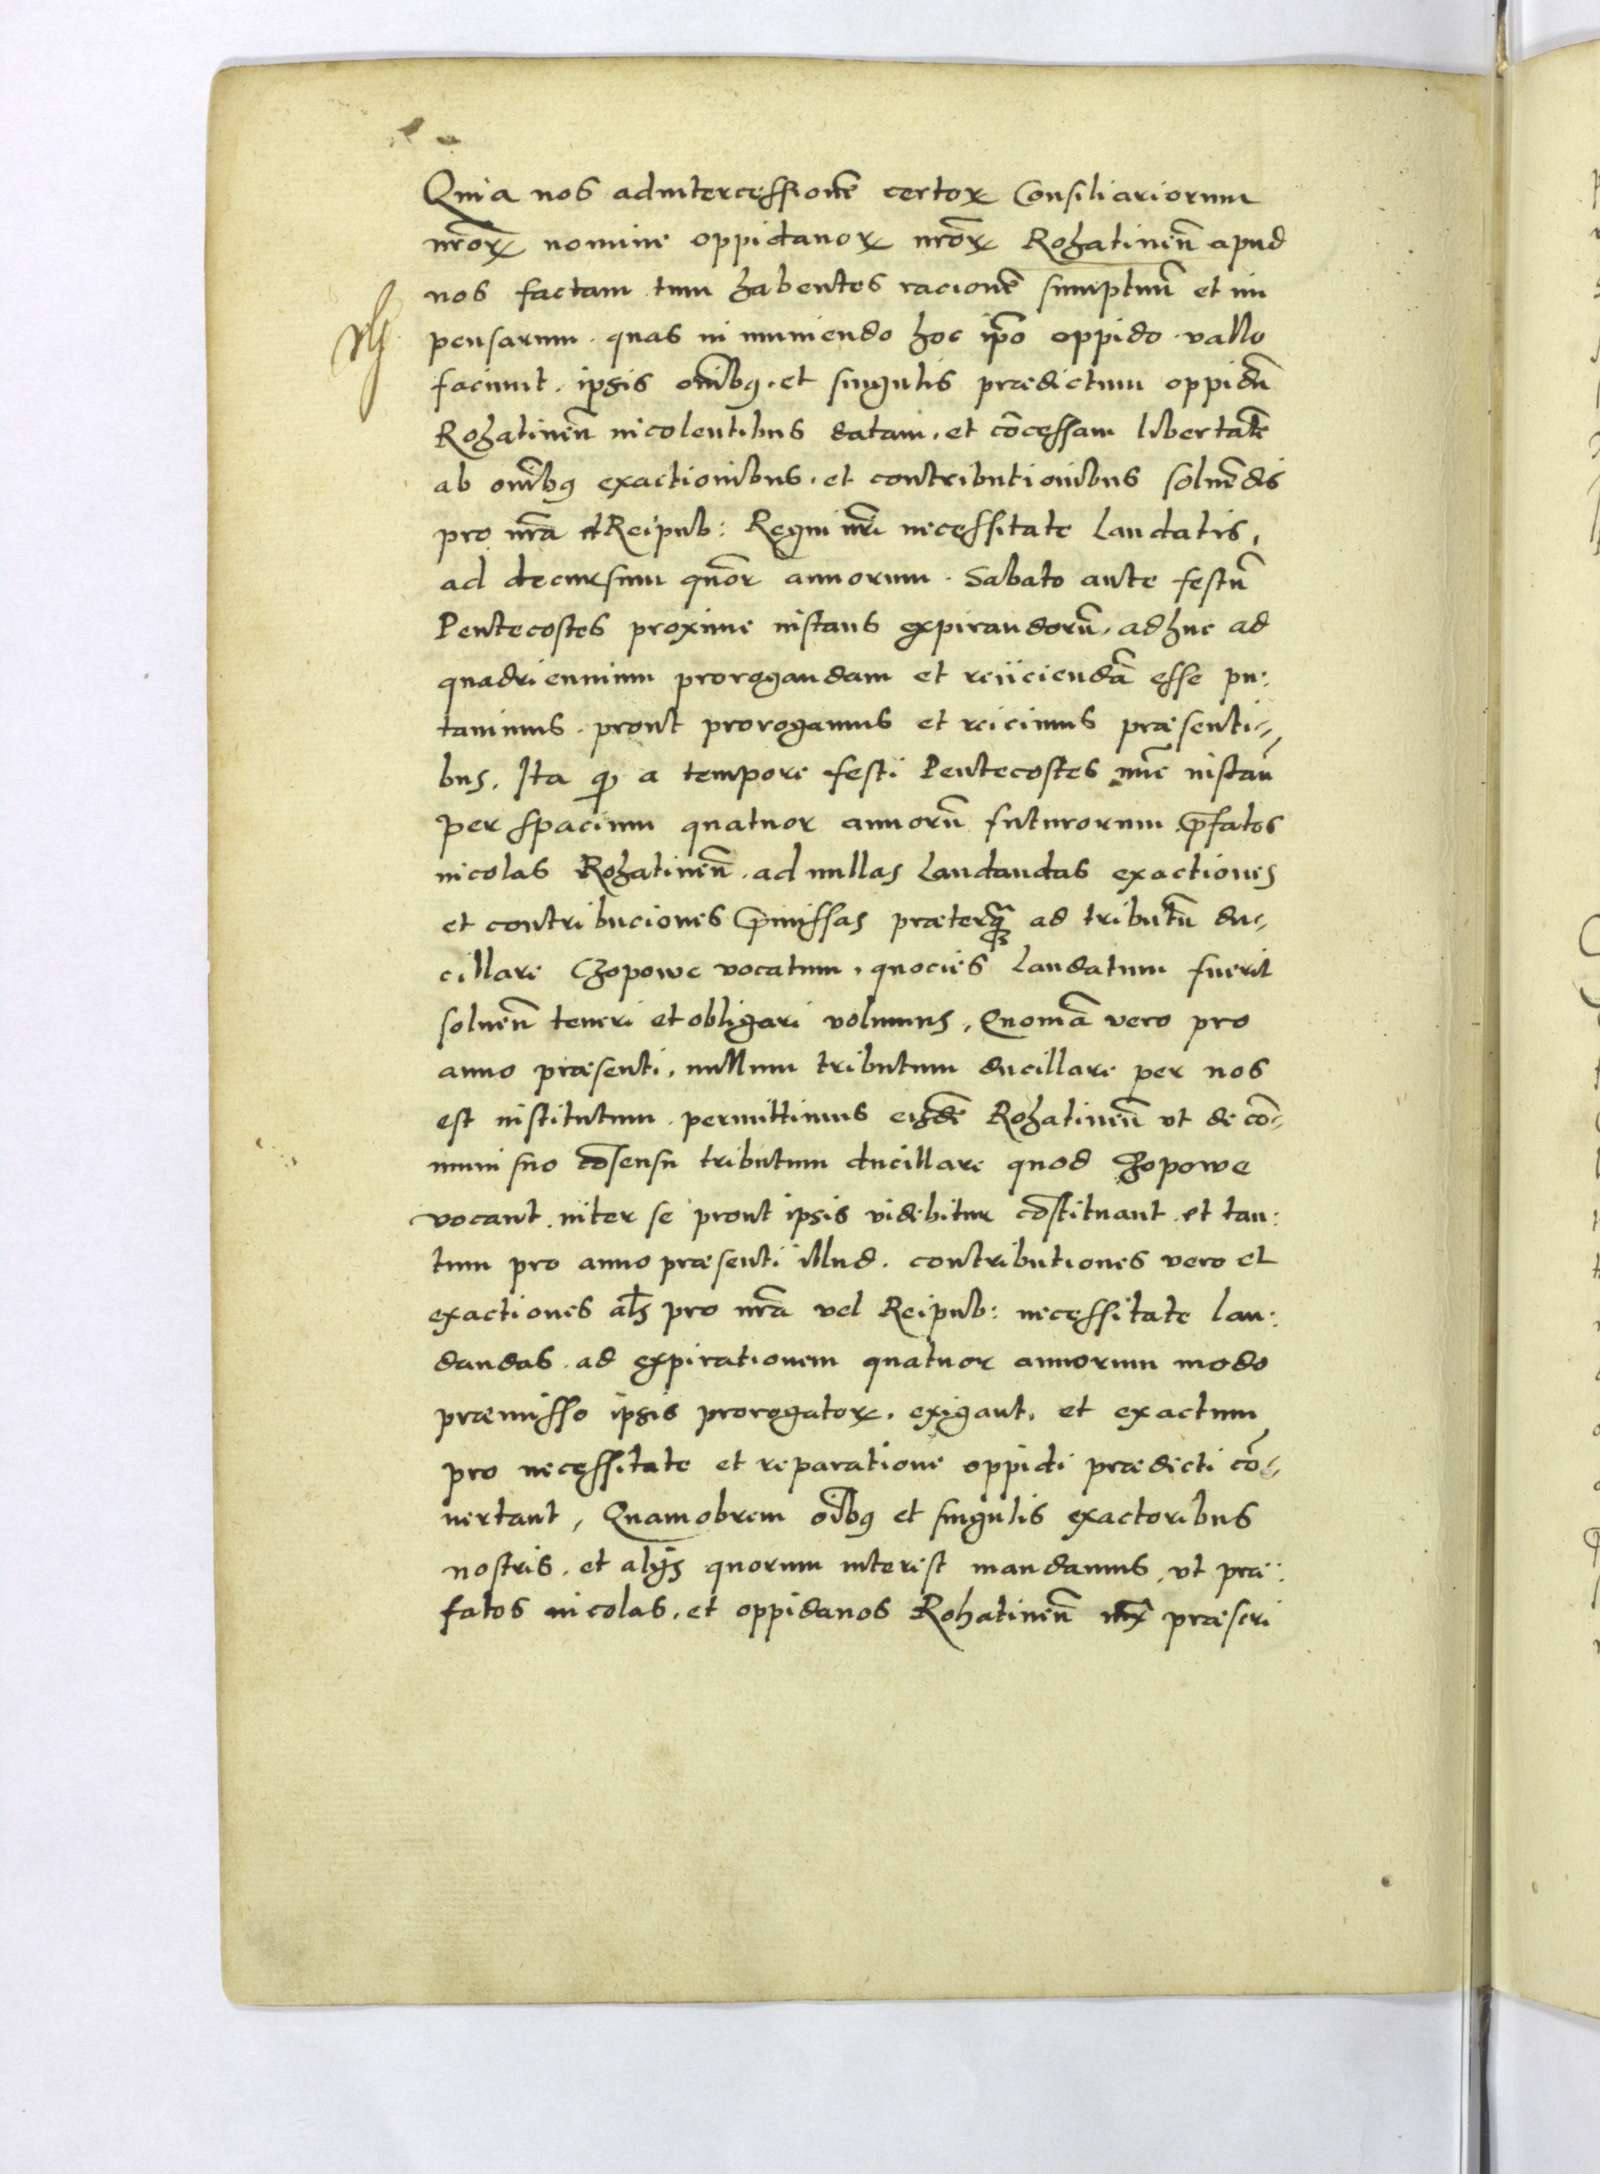 Quia nos ad intercessionē certoꝝ Consiliariorum
nr̄oꝝ nomine oppidanoꝝ nr̄oꝝ Rohatineñ apud
nos factam tum habentes racionē sumptuū et im
pensarum . quas in muniendo hoc ip̄o oppido . vallo
faciunt . ipsis om̄ibꝰ . et singulis prædictum oppidū
Rohatineñ incolentibus datam . et cōcessam libertatē
ab om̄ibꝰ exactionibus . et contributionibus soluēdis
pro nr̄a Reipub: Regni nr̄i necessitate laudatis,
ad decursum quōr annorum . Sabato ante festū
Pentecostes proxime instans expirandorū . adhuc ad
quadriennium prorogandam et reiiciendā esse pu:
tauimus . prout prorogamus et reicimus præsenti-
bus, Ita ꝙ a tempore festi Pentecostes nūc instañ
per spacium quatuor annorū futurorum p̄fatos
incolas Rohatineñ . ad nullas laudandas exactiones
et contribuciones p̄missas præterꝙ̄ ad tributū du-
cillare Czopowe vocatum . quocies laudatum fuerit
solueñ teneri et obligari volumus, Quoniā vero pro
anno præsenti . nullum tributum ducillare per nos
est institutum . permittimus eisdē Rohatineñ vt de cō-
muni suo cōsensu tributum ducillare quod Czopowe
vocant . inter se prout ipsis videbitur cōstituant . et tan:
tum pro anno præsenti illud . contributiones vero et
exactiones al̄s pro nr̄a vel Reipub: necessitate lau:
dandas . ad expirationem quatuor annorum modo
præmisso ipsis prorogatoꝝ . exigant . et exactum
pro necessitate et reparatione oppidi prædicti cō-
uertant, Quamobrem oībꝰ et singulis exactoribus
nostris . et alijs quorum interest mandamus . vt præ:
fatos incolas . et oppidanos Rohatineñ præscri